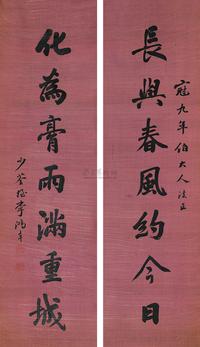 寇九年伯大人法正
長與春風約今日
化為膏雨滿重城
少荃侄李鴻章